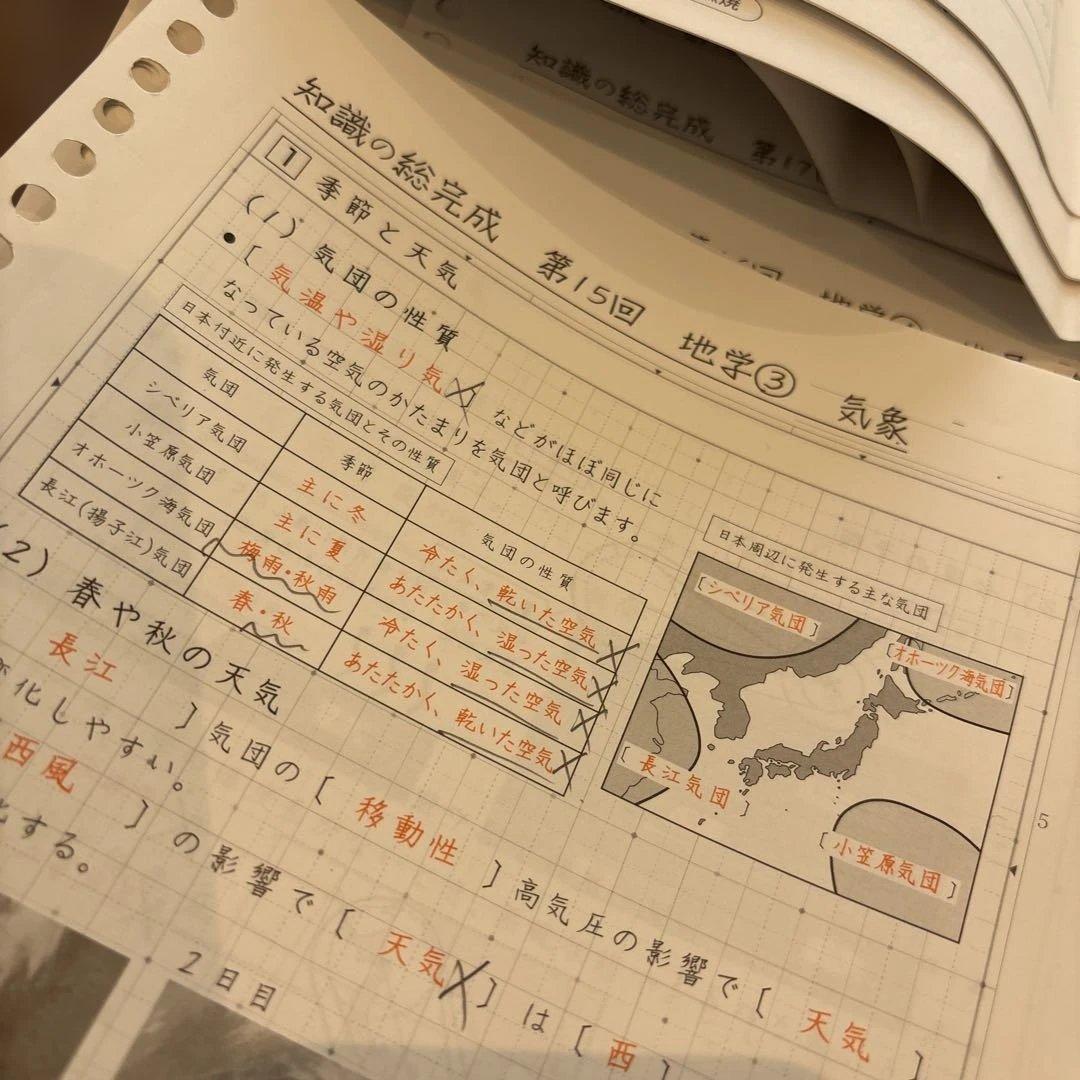 知識の総完成 第17
知識の総完成 第15回 地学③ 気象
1 季節と天気
(1) 気団の性質
•[ 気温や湿り気 ] などがほぼ同じに
なっている空気のかたまりを気団と呼びます。
日本付近に発生する気団とその性質
気団 季節 気団の性質
シベリア気団 主に冬 冷たく、乾いた空気
小笠原気団 主に夏 あたたかく、湿った空気
オホーツク海気団 梅雨・秋雨 冷たく、湿った空気
長江(揚子江)気団 春・秋 あたたかく、乾いた空気
日本周辺に発生する主な気団
[シベリア気団]
[オホーツク海気団]
[長江気団]
[小笠原気団]
(2) 春や秋の天気
長江 ] 気団の [ 移動性 ] 高気圧の影響で [ 天気 ]
化しやすい。
西風 ] の影響で [ 天気 ] は [ 西 ]
化する。
2日目
5